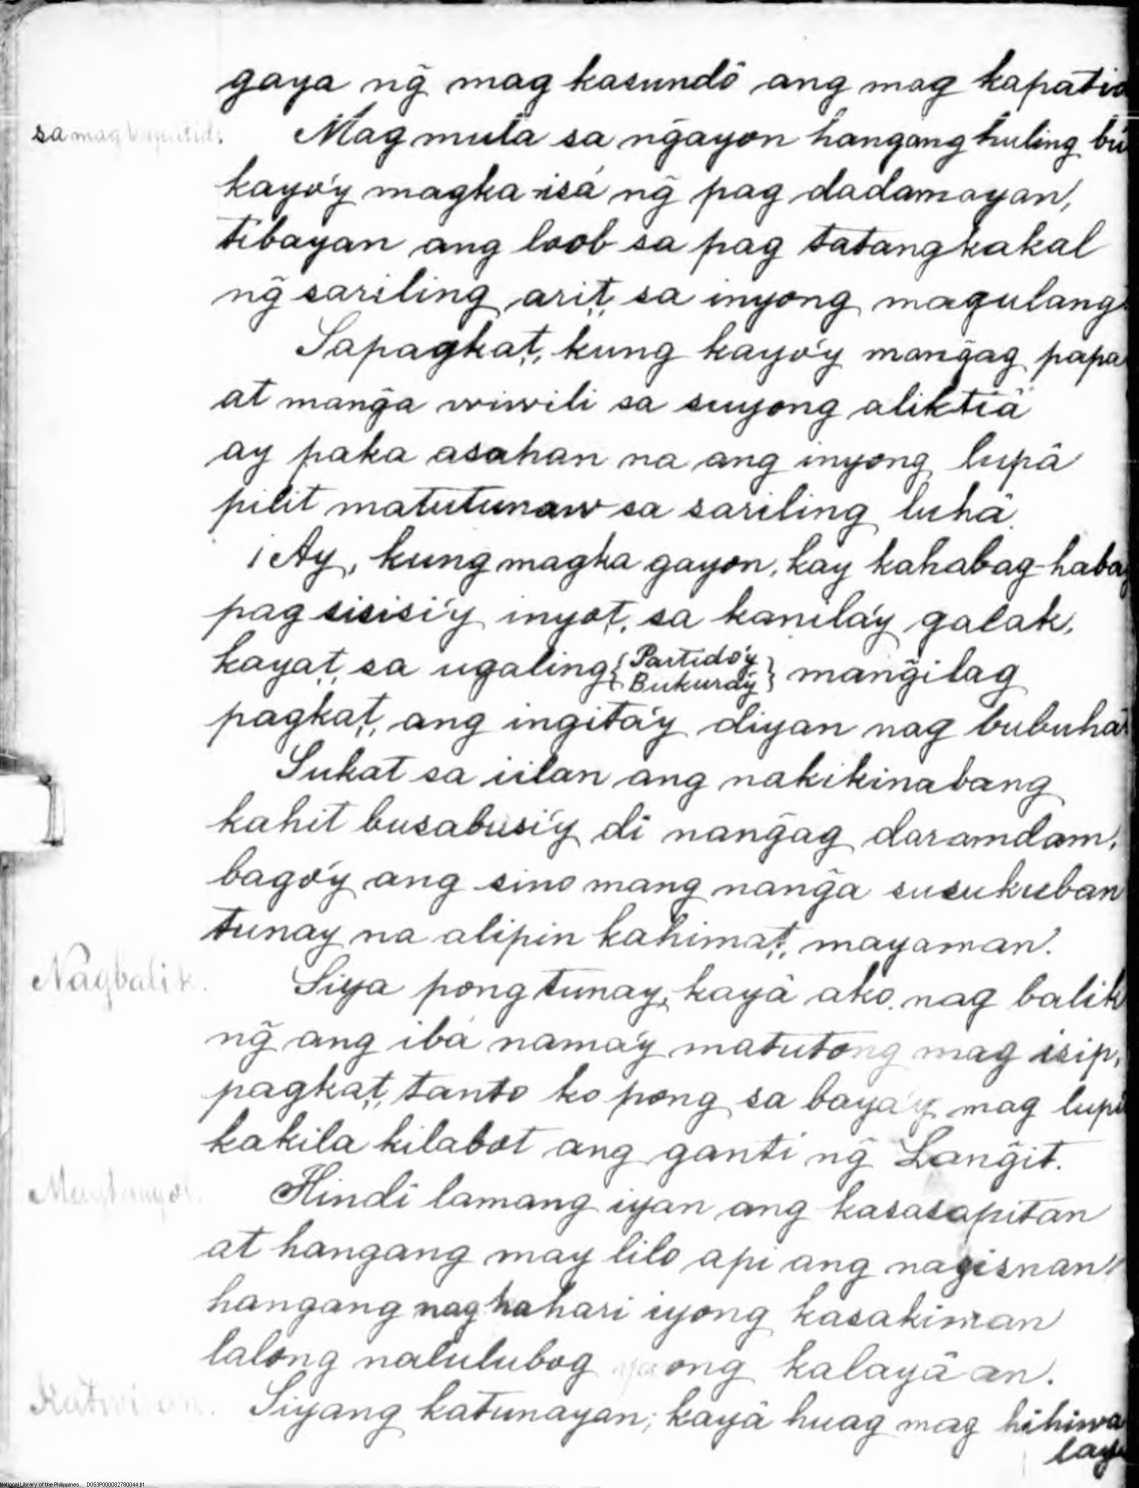 gaya ng̃ mag kasundô ang mag kapatid
sa
Mag mula sa ng̃ayon hangang huling
kayo'y magka-isá ng̃ pag dadamayan,
tibayan ang loob sa pag tatangkakal
ng̃ sariling arit, sa inyong magulang
Sapagkat, kung kayo'y mang̃ag papa
at mang̃a wiwili sa suyong aliktiâ
ay paka asahan na ang inyong lupâ
pilit matutunaw sa sariling luhâ.
¡Ay, kung magka gayon, kay kahabag-habag
pag sisisi'y inyot, sa kanila'y galak,
kayat, sa ugaling {Partido'y / Bukurdy} mang̃ilag
pagkat, ang ingita'y diyan nag bubuhat
Sukat sa iilan ang nakikinabang
kahit busabusi'y di nang̃ag daramdam,
bago'y ang sino mang nang̃a susukuban
tunay na alipin kahimat, mayaman.
Nagbalik.
Siya pong tunay, kayâ ako nag balik
ng̃ ang ibá nama'y matutong mag isip,
pagkat, tanto ko pong sa baya'y mag lupit
kakila kilabot ang ganti ng̃ Lang̃it.
Hindi lamang iyan ang kasasapitan
at hangang may lilo api ang nagisnan
hangang naghahari iyong kasakiman
lalong nalulubog yaong kalayâan.
Siyang katunayan; kayâ huag mag hihiwa
lay
National Library of the Philippines